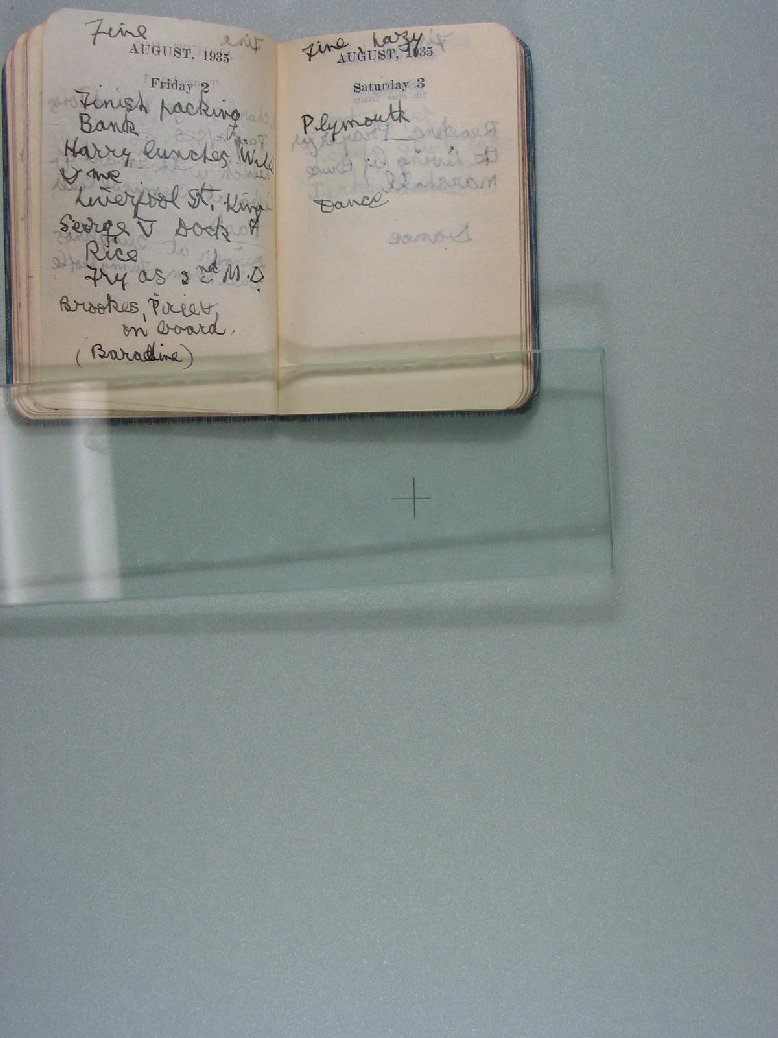 Fine
AUGUST, 1935
Friday 2
Finish packing
Bank
Harry lunches with
& me
Liverpool St. King
George V Dock &
Rice
Fry as 3rd M.D.
Brookes,
on board.
(Baradine)
Fine, hazy
AUGUST, 1935
Saturday 3
Plymouth
Dance